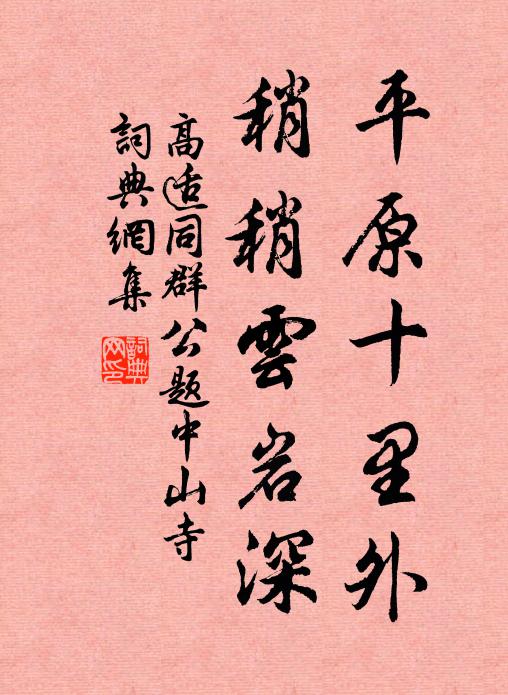 平原十里外
稍稍雲岩深
高适同群公題中山寺
詞典網集
詞典
网印